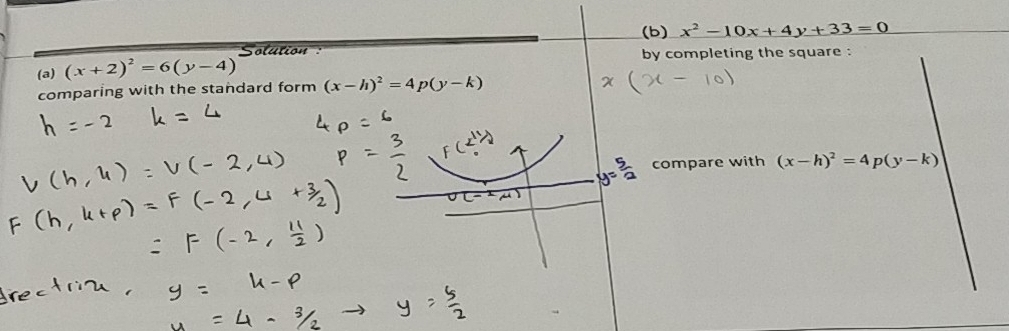 Solution :
(a) (x+2)² = 6(y−4)
comparing with the standard form (x−h)² = 4p(y−k)
h = -2 k = 4
4p = 6
p = 3/2
V(h,k) = V(-2,4)
F(h, k+p) = F(-2, 4 + 3/2)
= F(-2, 11/2)
directrix, y = k-p
y = 4 - 3/2 → y = 5/2
y = 5/2
(b) x² − 10x + 4y + 33 = 0
by completing the square :
x (x − 10)
compare with (x−h)² = 4p(y−k)